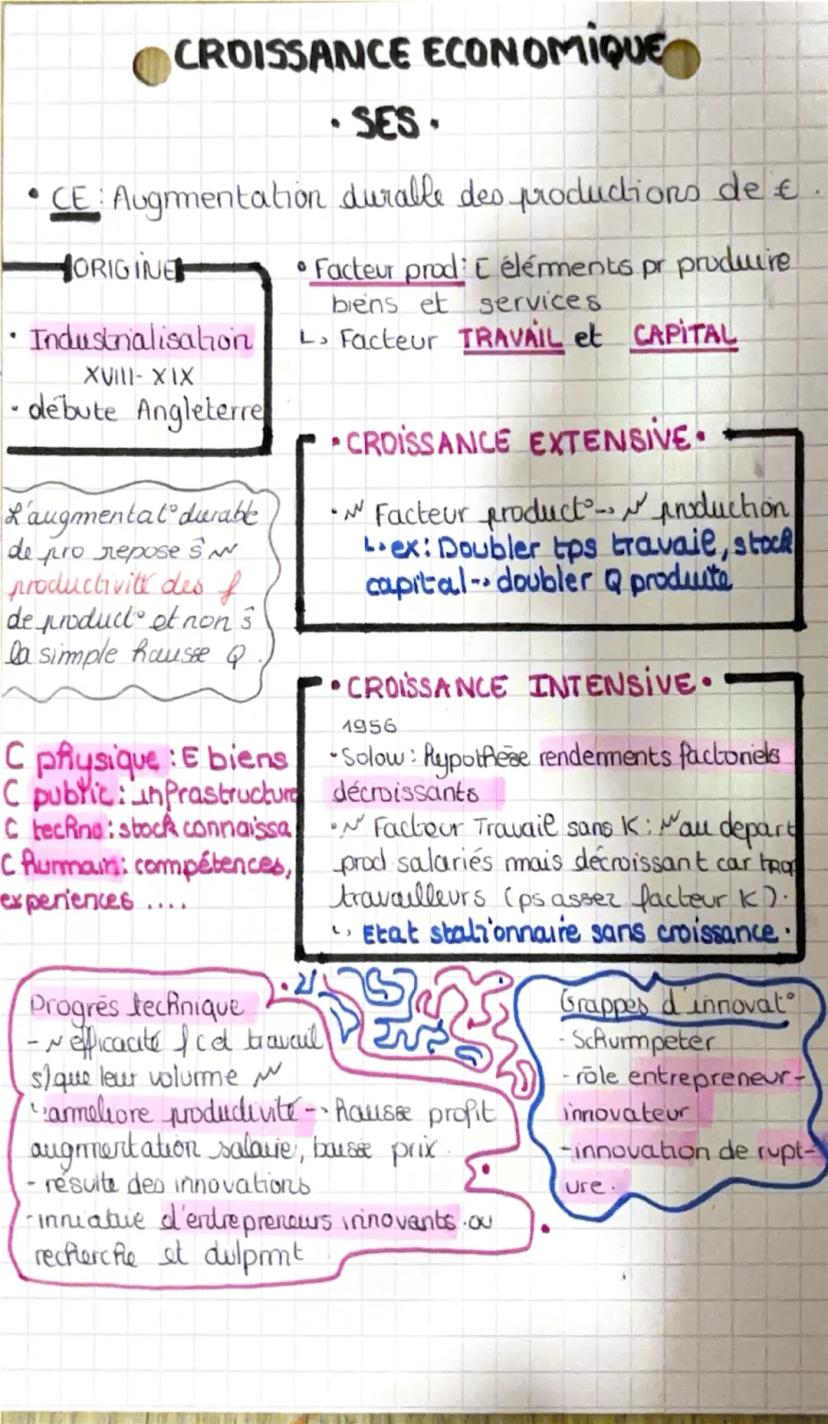 CROISSANCE ECONOMIQUE
• SES •
• CE : Augmentation durable des productions de €.
ORIGINE
• Industrialisation
XVIII - XIX
• débute Angleterre
• Facteur prod : E éléments pr produire
biens et services
↳ Facteur TRAVAIL et CAPITAL
• CROISSANCE EXTENSIVE •
• ↗ Facteur product° → ↗ production
↳ ex : Doubler tps travail, stock
capital → doubler Q produite
L'augmentat° durable
de pro repose ŝ ↗
productivité des f
de product° et non ŝ
la simple hausse Q.
• CROISSANCE INTENSIVE •
1956
• Solow : Hypothèse rendements factoriels
décroissants
• ↗ Facteur Travail sans K : ↗ au depart
prod salariés mais décroissant car trop
travailleurs (ps assez facteur K).
↳ Etat stationnaire sans croissance.
C physique : E biens
C public : infrastructure
C techno : stock connaissa
C humain : compétences,
experiences ....
Progrès technique
- ↗ efficacité f c et travail
s) que leur volume ↗
↳ améliore productivité → hausse profit
augmentation salaire, baisse prix.
- résulte des innovations
- inniatue d'entrepreneurs innovants ou
recherche et dvlpmt
Grappes d'innovat°
- Schumpeter
- rôle entrepreneur-
innovateur
- innovation de rupt-
ure.